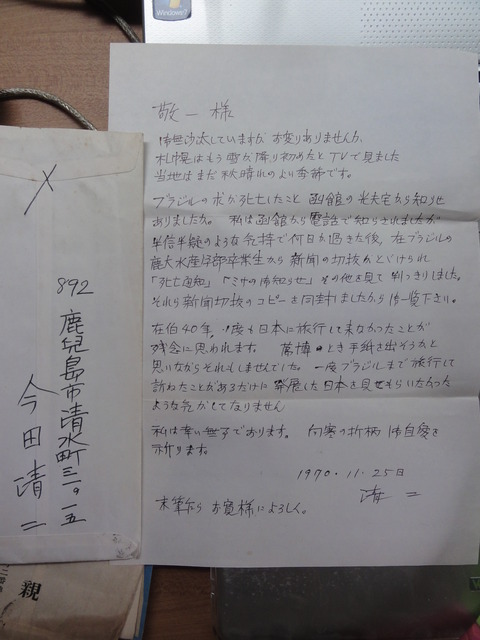 Windows 7
敬一様
御無沙汰していますが お変りありませんか、
札幌はもう雪が降り初めたとTVで見ました
当地はまだ秋晴れのよい季節です。
ブラジルの 死亡したこと 函館の 宅から知らせ
ありましたか。 私は函館から電話で知らされましたが
半信半疑のような気持で何日か過ぎた後、在ブラジルの
鹿大水産学部卒業生から新聞の切抜がとどけられ
「死亡通知」「ミサの御知らせ」その他を見て判っきりしました。
それら新聞切抜のコピーを同封しましたから御一覧下さい。
在伯40年、一度も日本に旅行して来なかったことが
残念に思われます。 萬博のとき手紙を出そうかと
思いながらそれもしませんでした。一度ブラジルまで旅行して
訪ねたことがあるだけに発展した日本を見せてもらいたかった
ような気がしてなりません
私は幸い無事であります。 向寒の折柄 御自愛を
祈ります。
1970.11.25日
清二
末筆乍ら お寛様によろしく。
892
鹿児島市清水町三一の一五
今田清二
親